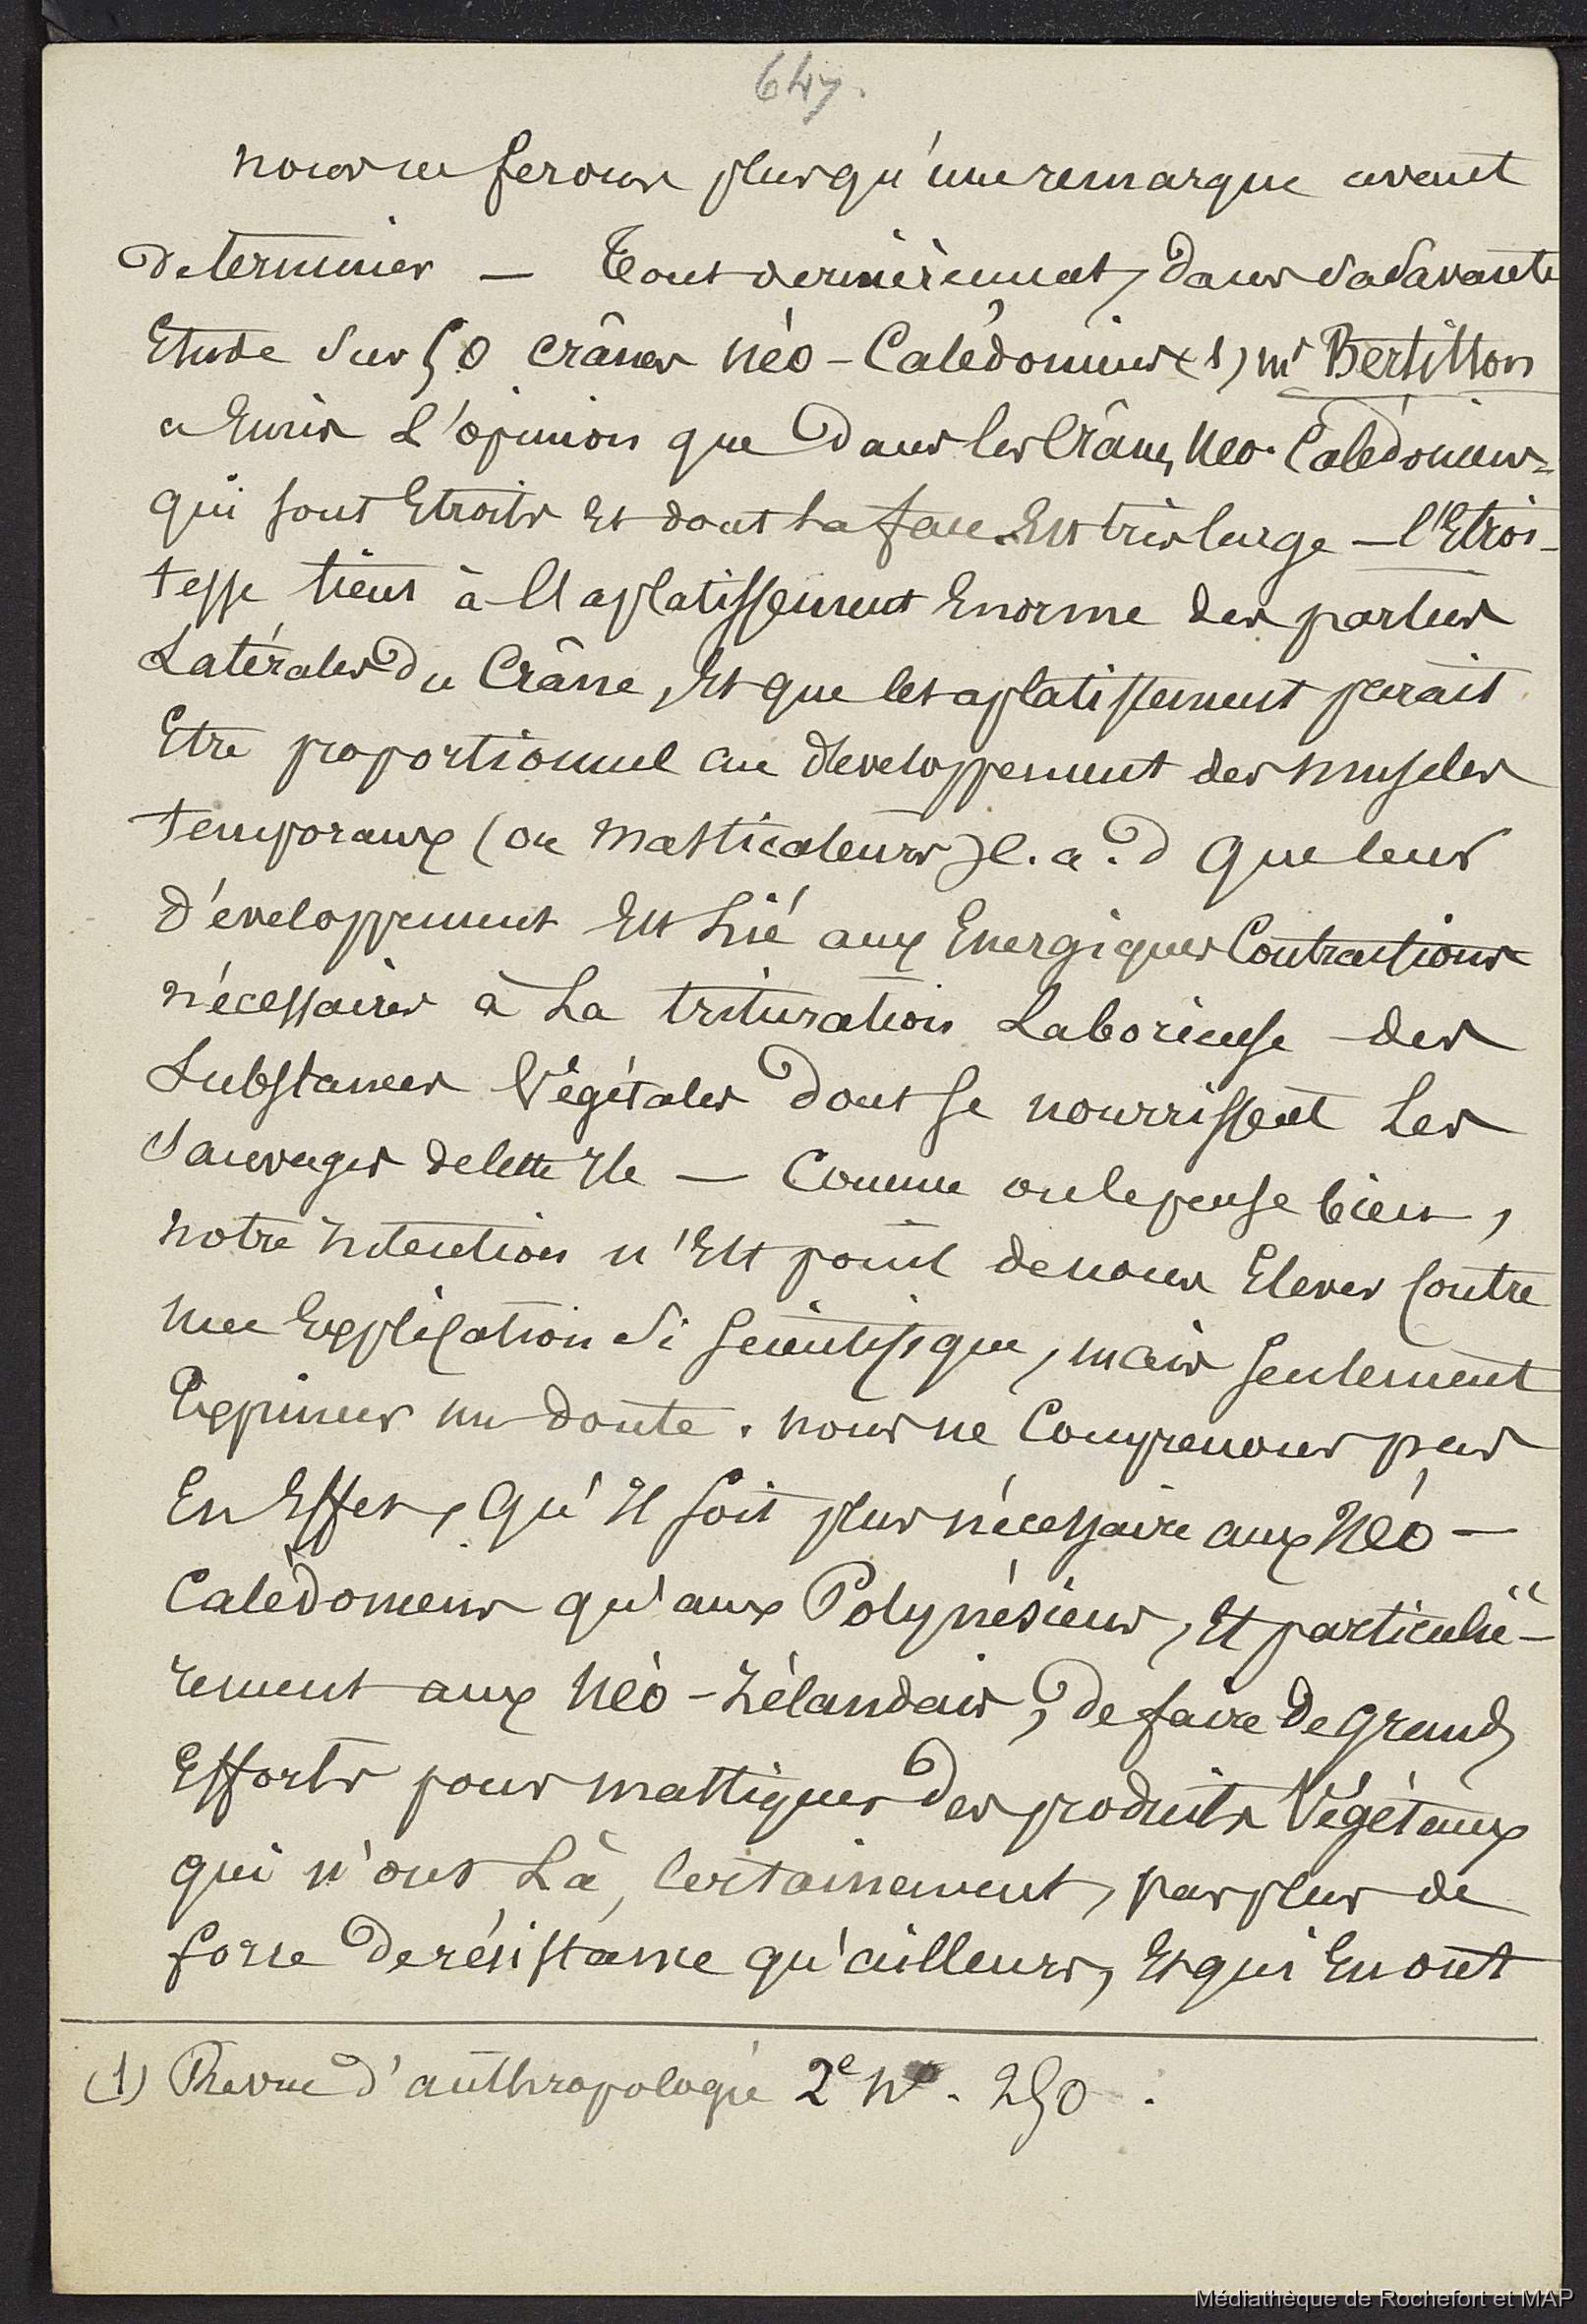 647.
nous ne ferons plus qu'une remarque avant
de terminer — Tout dernièrement, dans sa savante
Etude sur 50 crânes Néo-Calédoniens (1) Mr Bertillon
a Emis l'opinion que dans les Crânes Néo-Calédoniens
qui sont Etroits et dont la face Est très large — l'Etroi-
tesse tient à l'aplatissement Enorme des parties
Latérales du Crâne, Et que cet aplatissement parait
Etre proportionnel au developpement des muscles
temporaux (ou masticateurs) c.a.d que leur
développement Est Lié aux Energiques Contractions
nécessaires à La trituration Laborieuse des
Substances Végétales dont se nourrissent Les
Sauvages de Cette Ile — Comme on le pense bien,
notre intention n'Est point de nous Elever Contre
une Explication si scientifique, mais seulement
Exprimer un doute. nous ne Comprenons pas
En Effet, qu'Il soit plus nécessaire aux Néo-
Calédoniens qu'aux Polynésiens, Et particuliè-
rement aux Néo-Zélandais, de faire de grands
Efforts pour mastiquer des produits Végétaux
qui n'ont Là, Certainement, pas plus de
force de résistance qu'ailleurs, Et qui En ont
(1) Revue d'anthropologie 2e No. 250.
Médiathèque de Rochefort et MAP